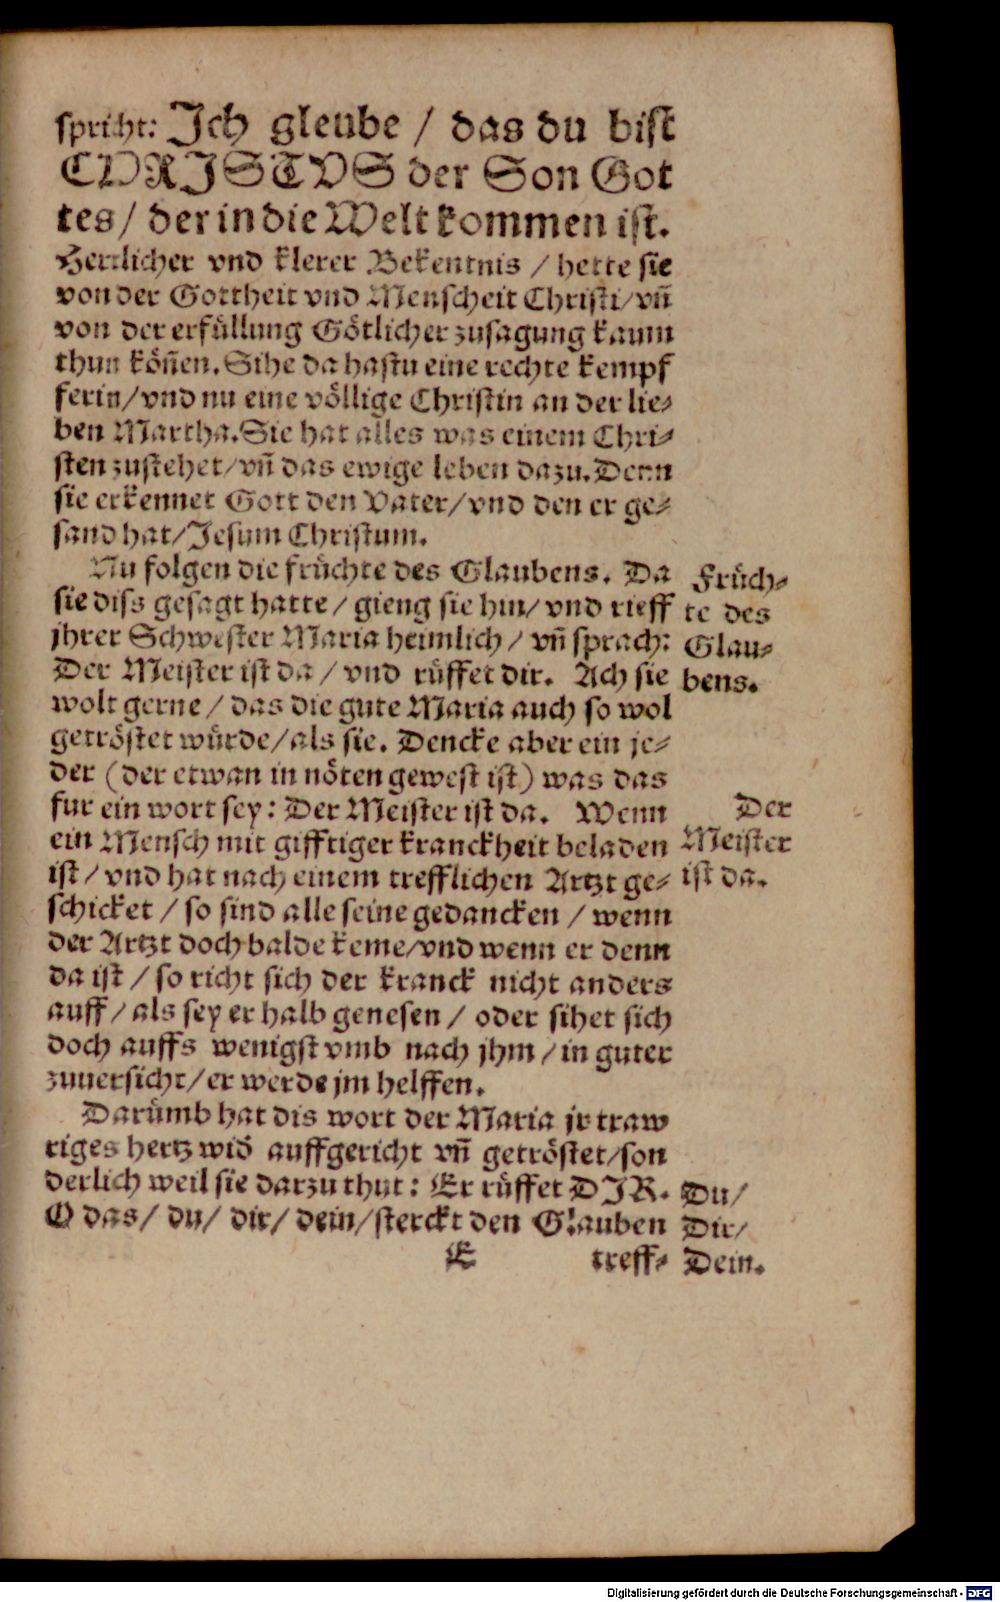 spricht: Ich gleube / das du bist
CHRISTVS der Son Got
tes/ der in die Welt kommen ist.
Herrlicher vnd klerer Bekentnis / hette sie
von der Gottheit vnd Menscheit Christi/ vn̄
von der erfüllung Götlicher zusagung kaum
thun kön̄en. Sihe da hastu eine rechte kempf
ferin/ vnd nu eine völlige Christin an der lie⸗
ben Martha. Sie hat alles was einem Chri⸗
sten zustehet/ vn̄ das ewige leben dazu. Denn
sie erkennet Gott den Vater/ vnd den er ge⸗
sand hat/ Jesum Christum.
Nu folgen die früchte des Glaubens. Da
sie diss gesagt hatte / gieng sie hin/ vnd rieff
jhrer Schwester Maria heimlich / vn̄ sprach:
Der Meister ist da / vnd rüffet dir. Ach sie
wolt gerne / das die gute Maria auch so wol
getröstet würde/ als sie. Dencke aber ein je⸗
der (der etwan in nöten gewest ist) was das
fur ein wort sey: Der Meister ist da. Wenn
ein Mensch mit gifftiger kranckheit beladen
ist / vnd hat nach einem trefflichen Artzt ge⸗
schicket / so sind alle seine gedancken / wenn
der Artzt doch balde keme/ vnd wenn er denn
da ist / so richt sich der kranck nicht anders
auff / als sey er halb genesen / oder sihet sich
doch auffs wenigst vmb nach jhm / in guter
zuuersicht/ er werde jm helffen.
Darümb hat dis wort der Maria jr traw
riges hertz wid̄ auffgericht vn̄ getröstet/ son
derlich weil sie darzu thut: Er rüffet DIR.
O das/ du/ dir/ dein/ sterckt den Glauben
E treff⸗
Früch⸗
te des
Glau⸗
bens.
Der
Meister
ist da.
Du/
Dir/
Dein.
Digitalisierung gefördert durch die Deutsche Forschungsgemeinschaft - DFG